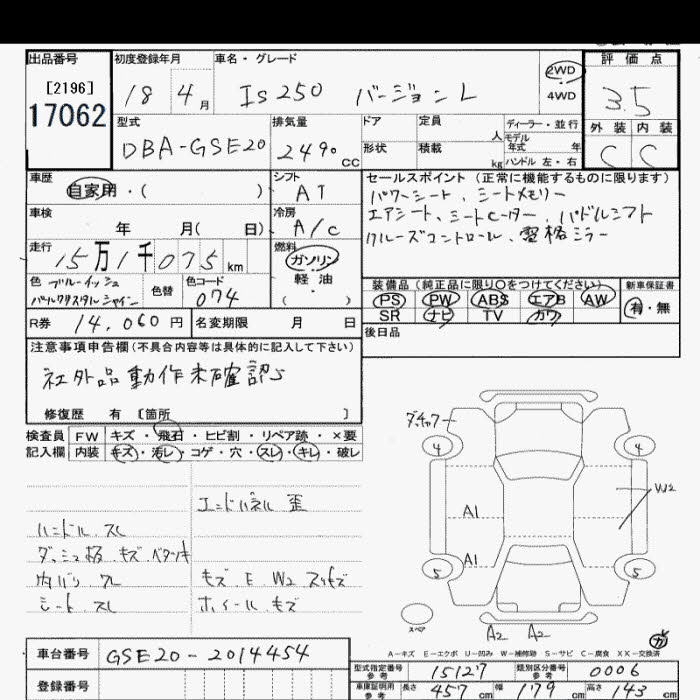 出品番号 初度登録年月 車名・グレード 評価点
[2196]
17062
18 4月 IS250 バージョンL 2WD 4WD 3.5
型式 排気量 ドア 定員 人 ディーラー・並行 外装 内装
DBA-GSE20 2490 CC 形状 積載 kg モデル年式 年 ハンドル 左・右 C C
車歴 シフト セールスポイント (正常に機能するものに限ります)
自家用・( ) AT パワーシート、シートメモリー
車検 冷房 エアシート、シートヒーター、パドルシフト
年 月( 日) A/C クルーズコントロール、電格ミラー
走行 燃料
15万1千075km ガソリン
軽油
( )
色 ブルーイッシュ 色替 色コード 074
パールクリスタルシャイン
装備品 (純正品に限り○をつけてください) 新車保証書
PS PW ABS エアB AW 有・無
SR ナビ TV カワ
R券 14,060円 名変期限 月 日
後日品
注意事項申告欄(不具合内容等は具体的に記入して下さい)
社外品動作未確認
修復歴 有 〔箇所 〕
検査員 FW キズ・飛石・ヒビ割・リペア跡・×要
記入欄 内装 キズ・汚レ・コゲ・穴・スレ・キレ・破レ
エンドパネル 歪
ハンドル スレ
ダッシュ板 キズ ベタツキ
内バリ スレ キズ E W2
シート スレ ホイール キズ
4 4
W2
A1
A1
5 5
スペア
A2 A2
A-キズ E-エクボ U-凹み W-補修跡 S-サビ C-腐食 XX-交換済
車台番号 GSE20-2014454
登録番号
型式指定番号 参考 15127 類別区分番号 参考 0006
車庫証明用 参考 長さ 457cm 幅 179cm 高さ 143cm